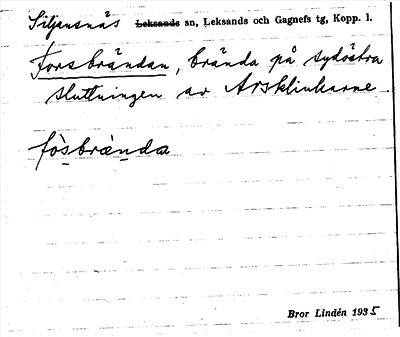 Siljansnäs Leksands sn, Leksands och Gagnefs tg, Kopp. l.
Forsbrändan, brända på sydöstra
sluttningen av Arsklinkarne.
fòsbrènda
Bror Lindén 1935